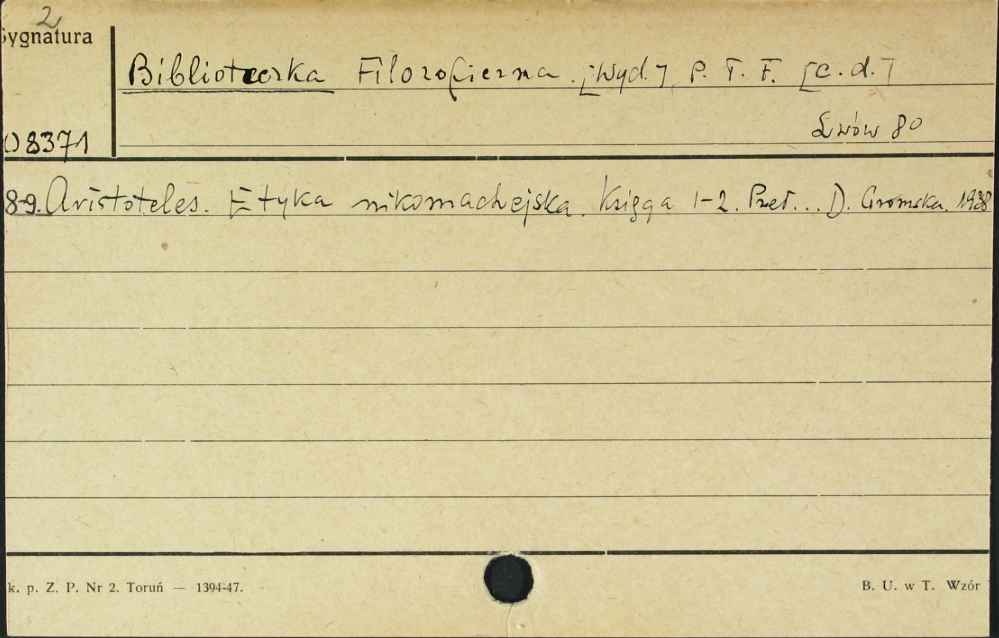 2
Sygnatura
Biblioteczka Filozoficzna. [Wyd.] P. T. F. [c. d.]
Lwów 80
08371
8-9. Aristoteles. Etyka nikomachejska. Księga 1-2. Przeł... D. Gromska. 1938
k. p. Z. P. Nr 2. Toruń — 1394-47.
B. U. w T. Wzór